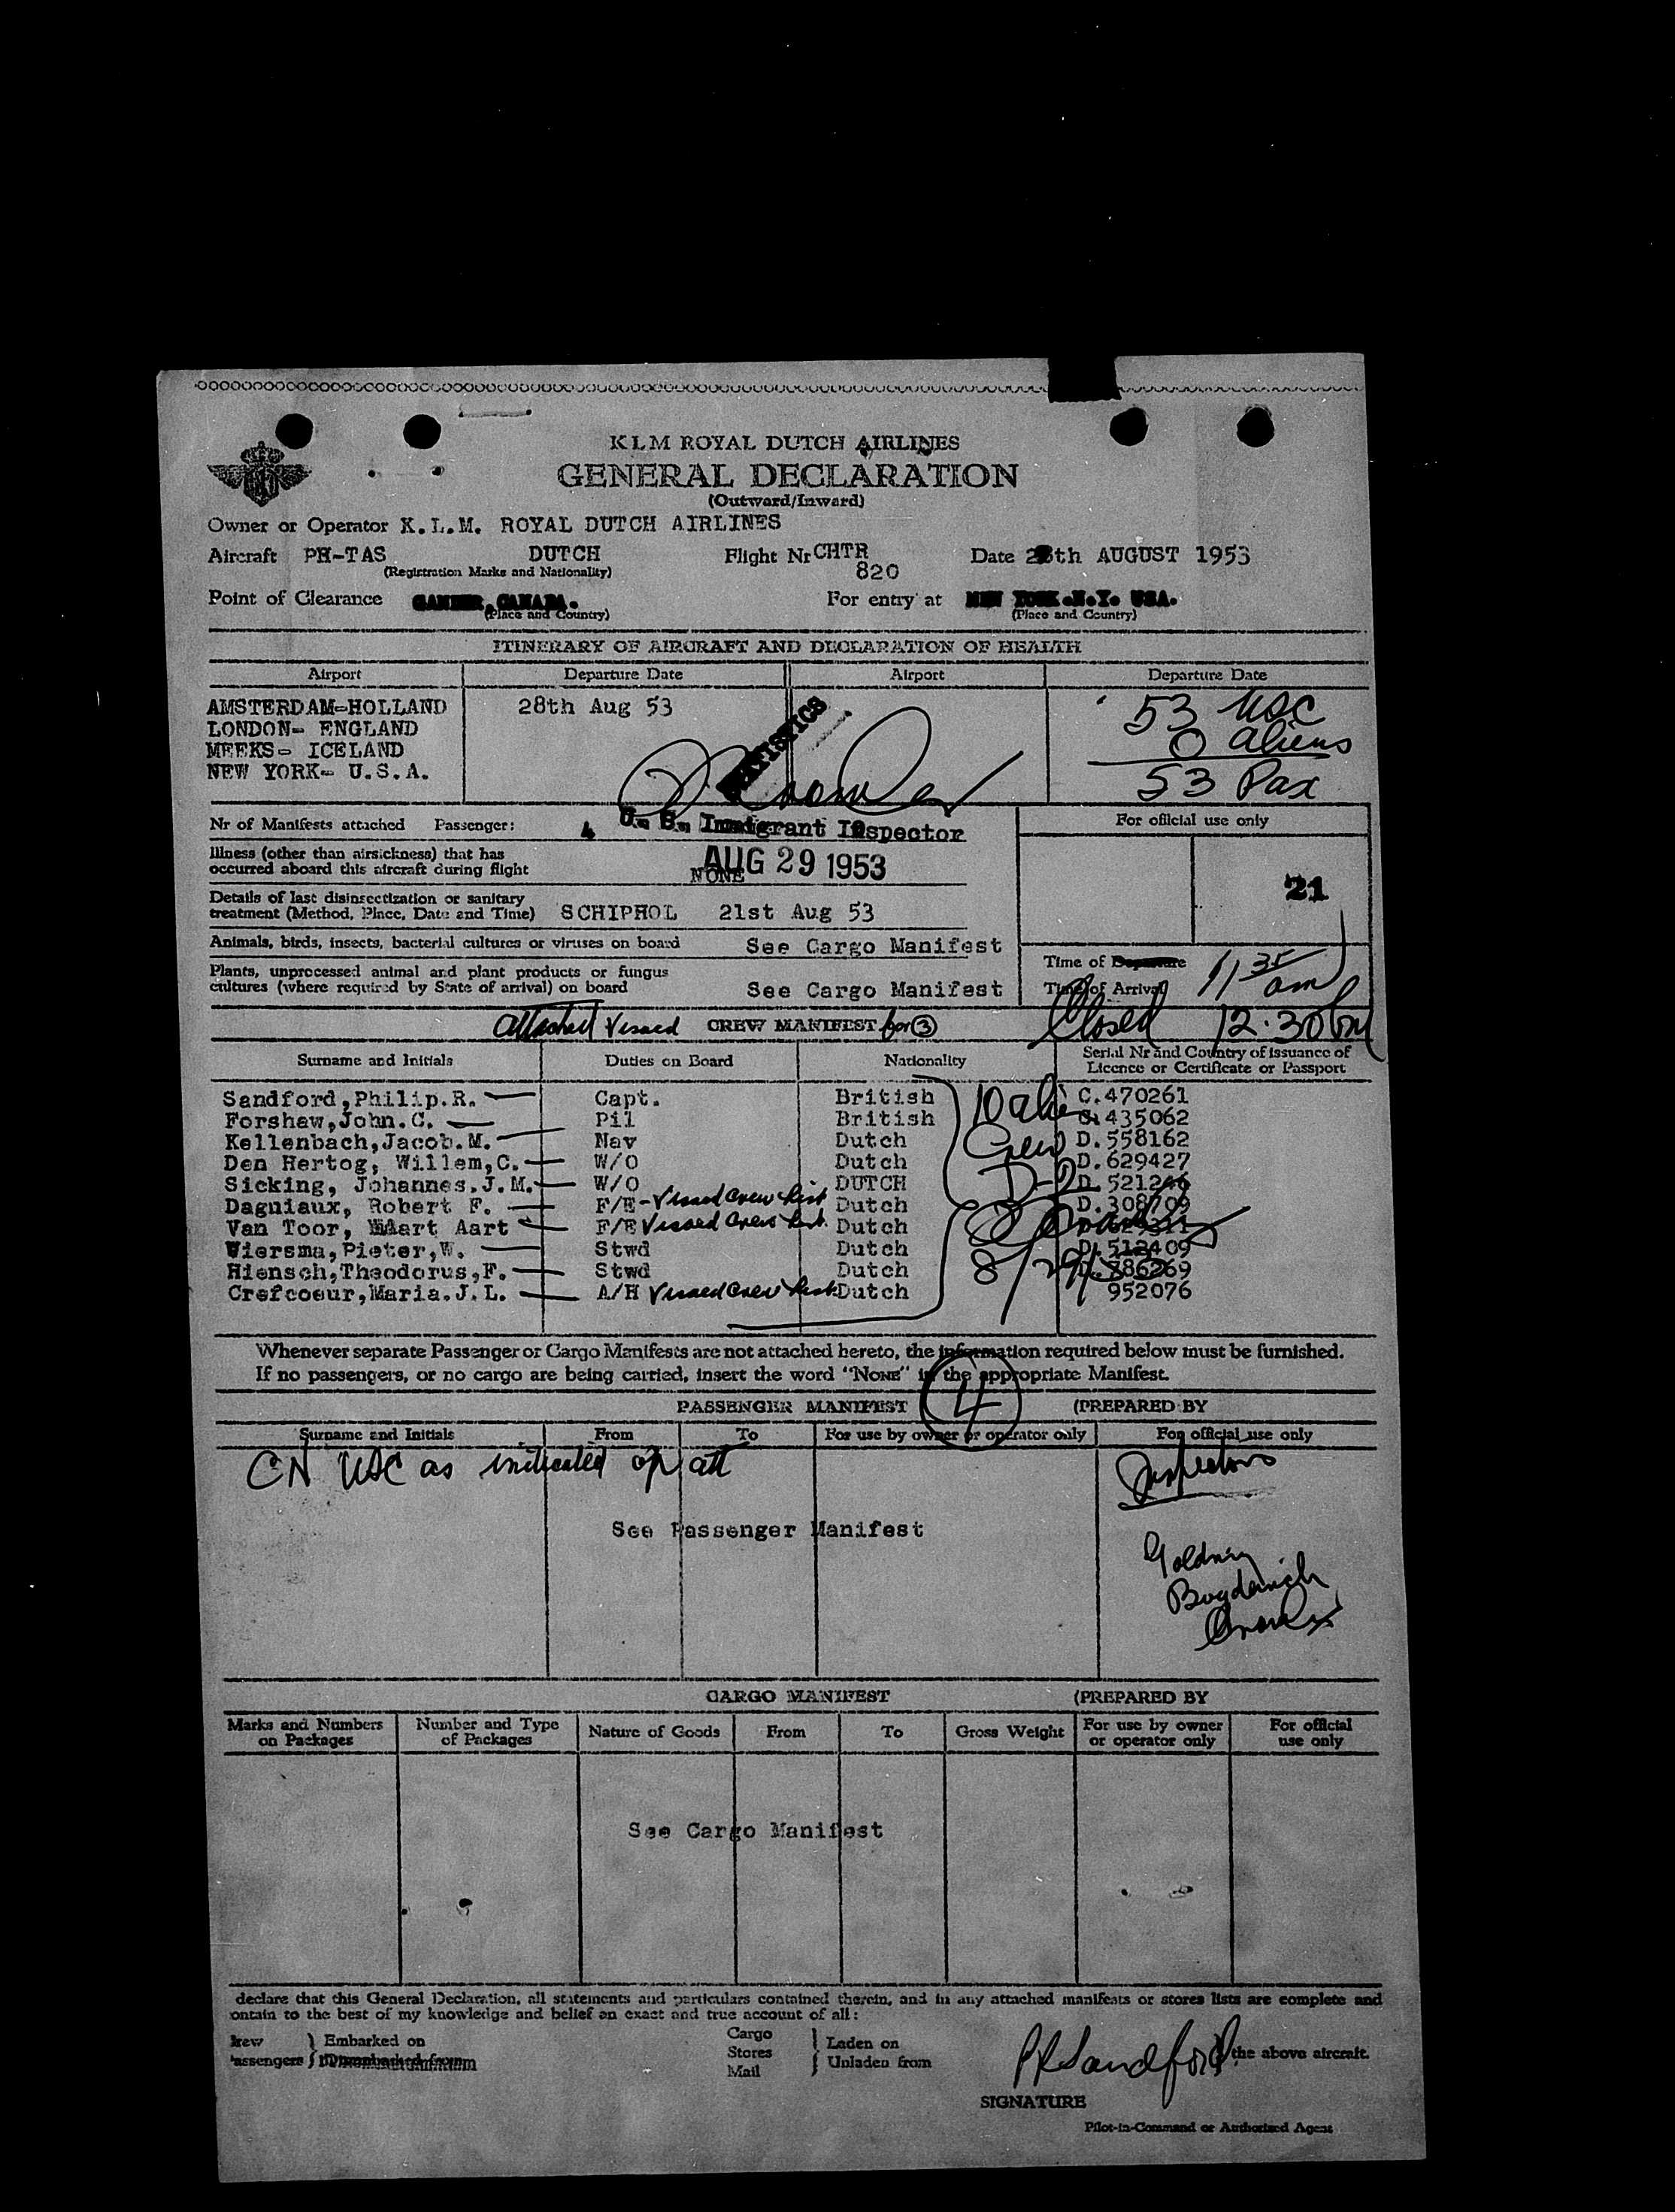 KLM ROYAL DUTCH AIRLINES
GENERAL DECLARATION
(Outward/Inward)
Owner or Operator K.L.M. ROYAL DUTCH AIRLINES
Aircraft PH-TAS DUTCH Flight Nr CHTR 820 Date 28th AUGUST 1953
(Registration Marks and Nationality)
Point of Clearance GANDER, CANADA. For entry at NEW YORK.N.Y. USA.
(Place and Country) (Place and Country)
ITINERARY OF AIRCRAFT AND DECLARATION OF HEALTH
Airport Departure Date Airport Departure Date
AMSTERDAM-HOLLAND 28th Aug 53 53 USC
LONDON- ENGLAND 0 aliens
MEEKS- ICELAND 53 Pax
NEW YORK- U.S.A.
STATISTICS
Nr of Manifests attached Passenger: 4 U. S. Immigrant Inspector For official use only
Illness (other than airsickness) that has
occurred aboard this aircraft during flight NONE AUG 29 1953
21
Details of last disinsectization or sanitary
treatment (Method, Place, Date and Time) SCHIPHOL 21st Aug 53
Animals, birds, insects, bacterial cultures or viruses on board See Cargo Manifest
Time of Departure 11 35 am
Plants, unprocessed animal and plant products or fungus
cultures (where required by State of arrival) on board See Cargo Manifest
Time of Arrival
Attached Visaed CREW MANIFEST for 3 Closed 12.30 pm
Surname and Initials Duties on Board Nationality Serial Nr and Country of issuance of
Licence or Certificate or Passport
Sandford,Philip.R. Capt. British C.470261
Forshaw,John.C. Pil British 435062
Kellenbach,Jacob.M. Nav Dutch D.558162
Den Hertog, Willem,C. W/O Dutch D.629427
Sicking, Johannes,J.M. W/O DUTCH D.521246
Dagniaux, Robert F. F/E- Visaed Crew List Dutch D.308709
Van Toor, Maart Aart F/E Visaed Crew List Dutch
Wiersma,Pieter,W. Stwd Dutch D.512409
Hiensch,Theodorus,F. Stwd Dutch D.786269
Crefcoeur,Maria.J.L. A/H Visaed Crew List Dutch 952076
10 alien
Crew
D-2
8/29/53
Whenever separate Passenger or Cargo Manifests are not attached hereto, the information required below must be furnished.
If no passengers, or no cargo are being carried, insert the word "NONE" in the appropriate Manifest.
4
PASSENGER MANIFEST (PREPARED BY
Surname and Initials From To For use by owner or operator only For official use only
CN USC as indicated on att Inspectors
See Passenger Manifest
CARGO MANIFEST (PREPARED BY
Marks and Numbers on Packages Number and Type of Packages Nature of Goods From To Gross Weight For use by owner or operator only For official use only
See Cargo Manifest
declare that this General Declaration, all statements and particulars contained therein, and in any attached manifests or stores lists are complete and
ontain to the best of my knowledge and belief an exact and true account of all:
Crew Embarked on Cargo Laden on
Passengers Stores Unladen from
Mail
PRSandford the above aircraft.
SIGNATURE
Pilot-in-Command or Authorized Agent